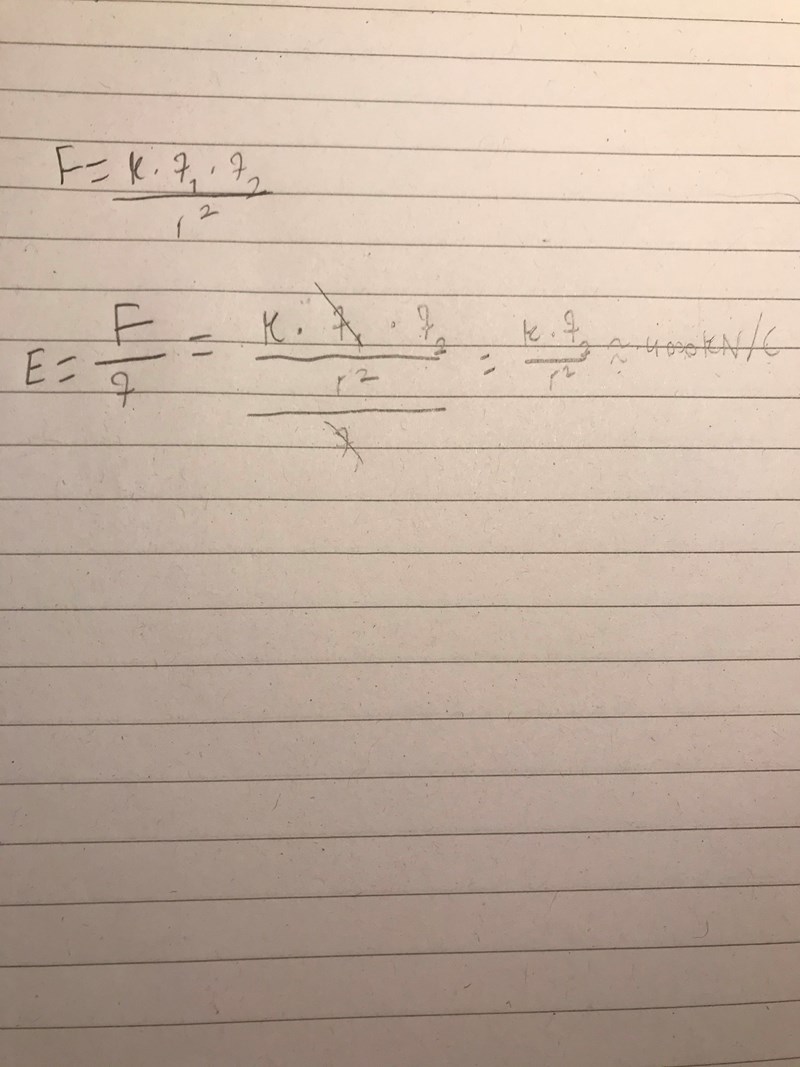 F = k · q₁ · q₂ / r²
E = F / q = (k · q₁ · q₂ / r²) / q = k · q₂ / r² ≈ 4000 kN/C